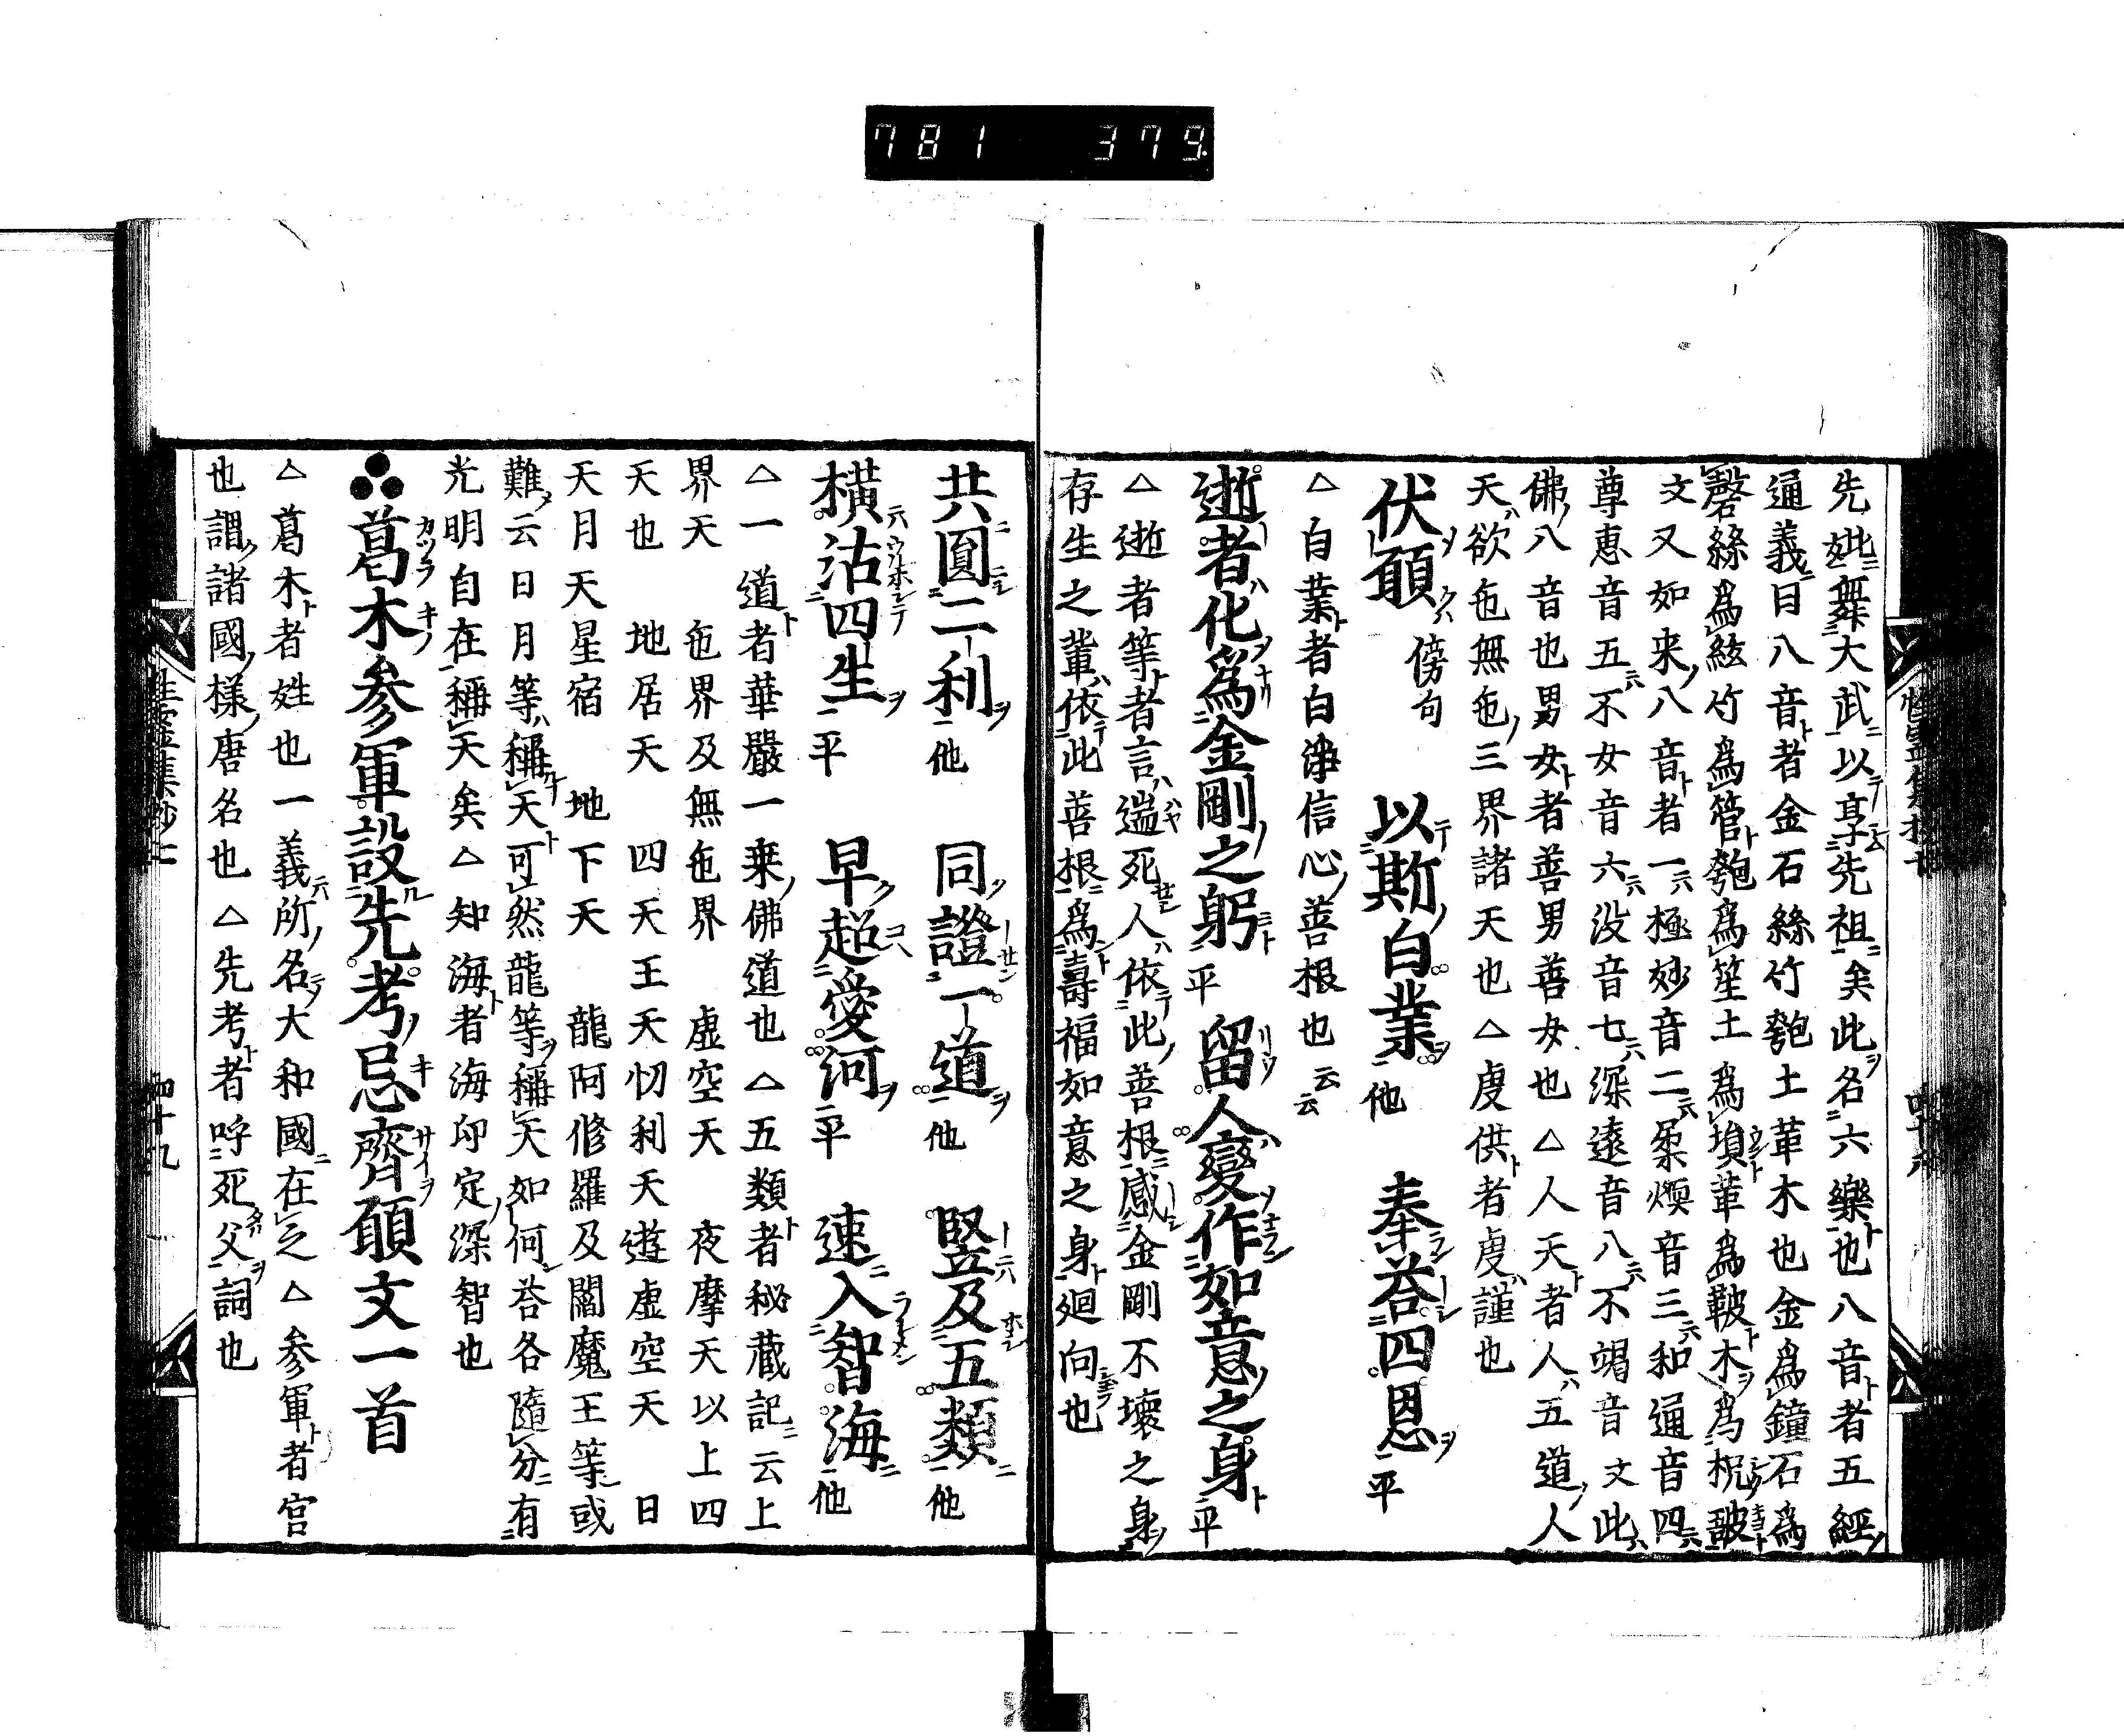 781 379.
先妣舞大武以享先祖矣此名六樂也八音者五經
通義曰八音者金石絲竹匏土革木也金爲鐘石爲
磬絲爲絃竹爲管匏爲笙土爲塤革爲鼓木爲柷敔
文又如来八音者一極妙音二柔煗音三和適音四
尊恵音五不女音六没音七深遠音八不竭音文此
佛八音也男女者善男善女也△人天者人五道人
天欲色無色三界諸天也△虔供者虔謹也
伏願 傍句 以斯白業他 奉荅四恩平
△白業者白淨信心善根也云云
逝者化爲金剛之躬平 留人變作如意之身平
△逝者等者言遄死人依此善根感金剛不壞之身
存生之輩依此善根爲壽福如意之身廻向也
共圓二利他 同證一道他 竪及五類他
横沽四生平 早超愛河平 速入智海他
△一道者華嚴一乗佛道也△五類者秘藏記云上
界天 色界及無色界 虚空天 夜摩天以上四
天也 地居天 四天王天忉利天遊虚空天 日
天月天星宿 地下天 龍阿修羅及閻魔王等或
難云日月等稱天可然龍等稱天如何荅各隨分有
光明自在稱天矣△知海者海印定深智也
葛木参軍設先考忌齊願文一首
△葛木者姓也一義所名大和國在之△参軍者官
也謂諸國樣唐名也△先考者呼死父詞也
四十九